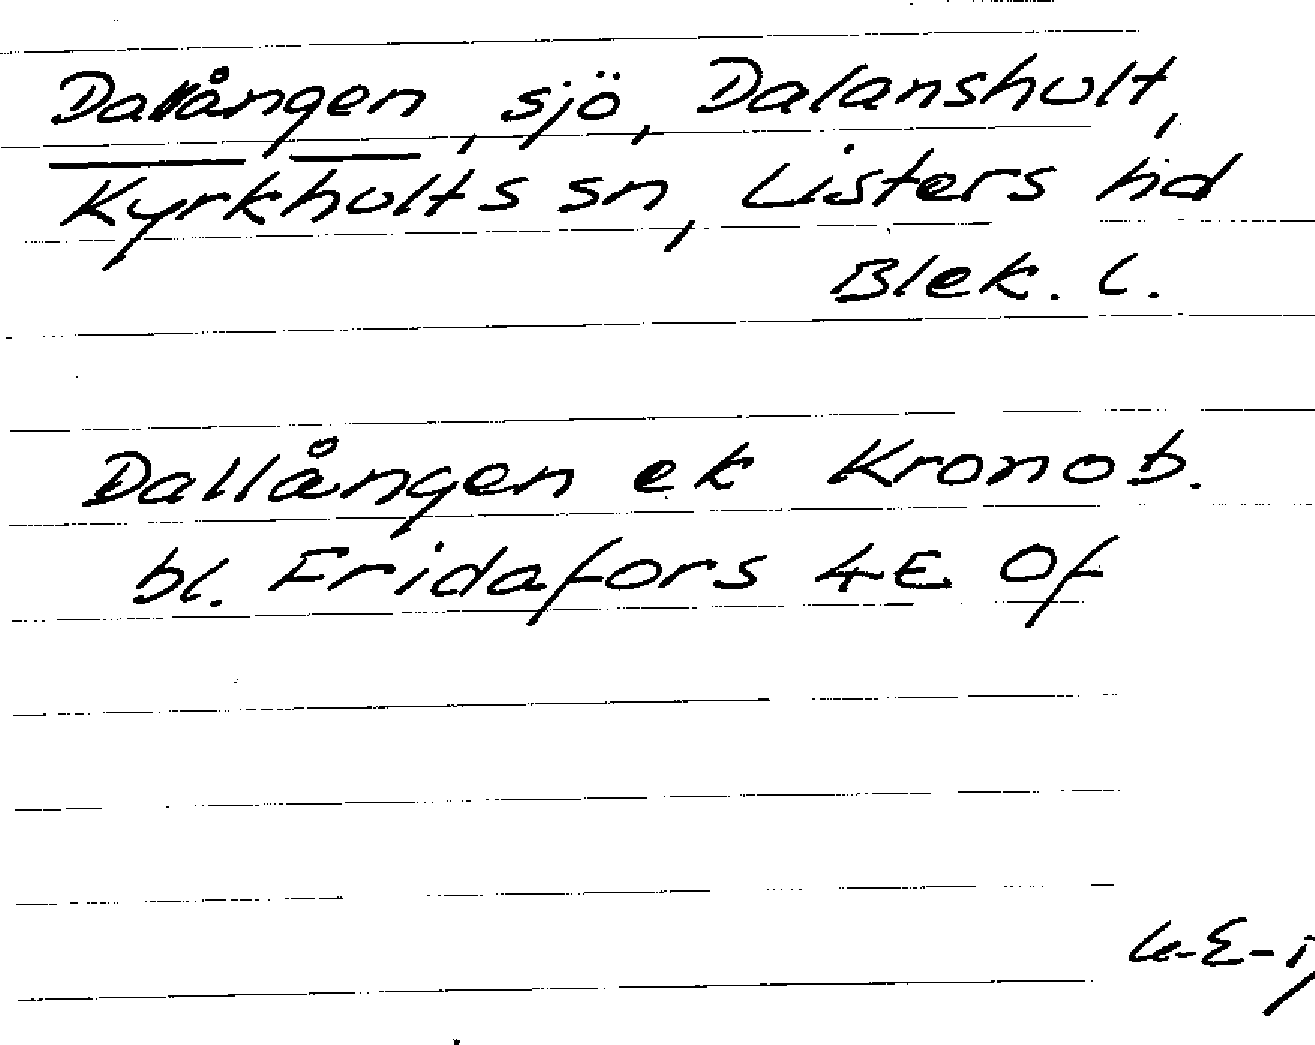 Dalången, sjö, Dalanshult,
Kyrkhults sn, Listers hd
Blek. l.
Dallången ek Kronob.
bl. Fridafors 4E Of